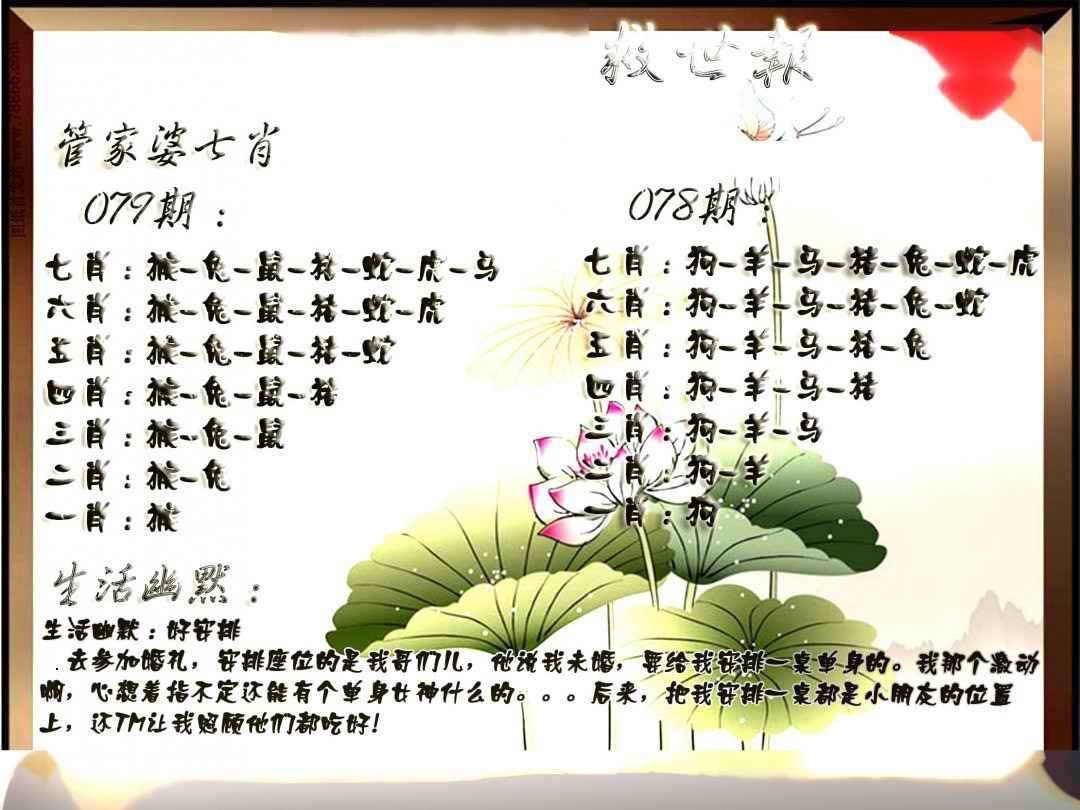 救世報
管家婆七肖
079期：
七肖：猴-兔-鼠-猪-蛇-虎-马
六肖：猴-兔-鼠-猪-蛇-虎
五肖：猴-兔-鼠-猪-蛇
四肖：猴-兔-鼠-猪
三肖：猴-兔-鼠
二肖：猴-兔
一肖：猴
078期：
七肖：狗-羊-马-猪-兔-蛇-虎
六肖：狗-羊-马-猪-兔-蛇
五肖：狗-羊-马-猪-兔
四肖：狗-羊-马-猪
三肖：狗-羊-马
二肖：狗-羊
一肖：狗
生活幽默：
生活幽默：好安排
．去参加婚礼，安排座位的是我哥们儿，他说我未婚，要给我安排一桌单身的。我那个激动
啊，心想着指不定还能有个单身女神什么的。。。后来，把我安排一桌都是小朋友的位置
上，还TM让我照顾他们都吃好！